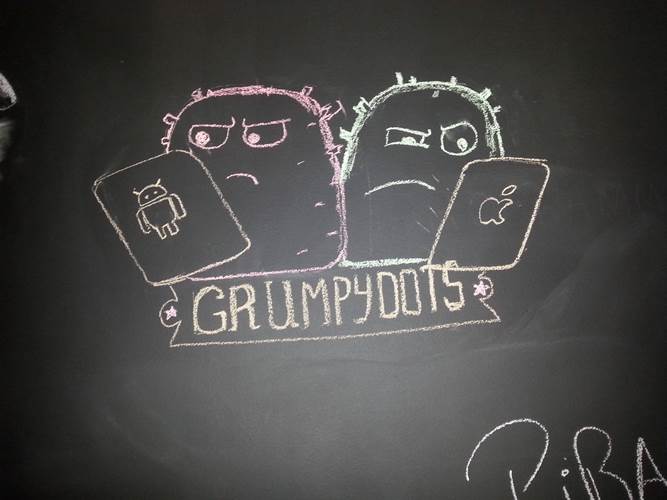 GRUMPYDOTS
PiRA